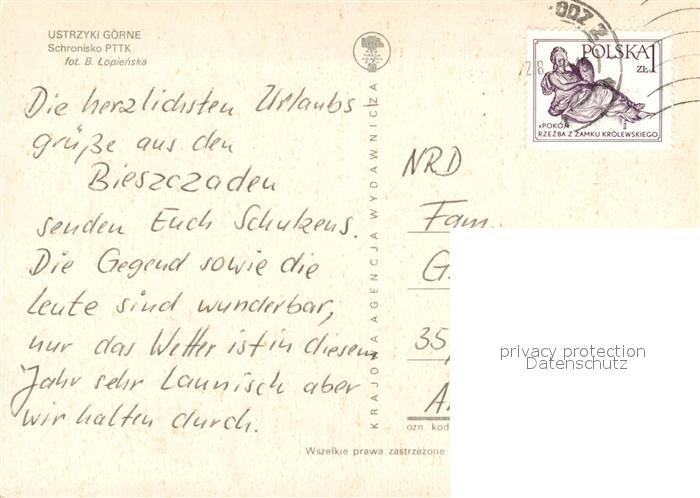 USTRZYKI GÓRNE
Schronisko PTTK
fot. B. Łopieńska
Die herzlichsten Urlaubs
grüße aus den
Bieszczaden
senden Euch Schulzens.
Die Gegend sowie die
Leute sind wunderbar,
nur das Wetter ist in diesem
Jahr sehr Launisch aber
wir halten durch.
KRAJOWA AGENCJA WYDAWNICZA
POLSKA 1
ZŁ
»POKÓJ«
RZEŹBA Z ZAMKU KRÓLEWSKIEGO
NRD
Fam.
G.
35
A
ozn. kod
Wszelkie prawa zastrzeżone
privacy protection
Datenschutz